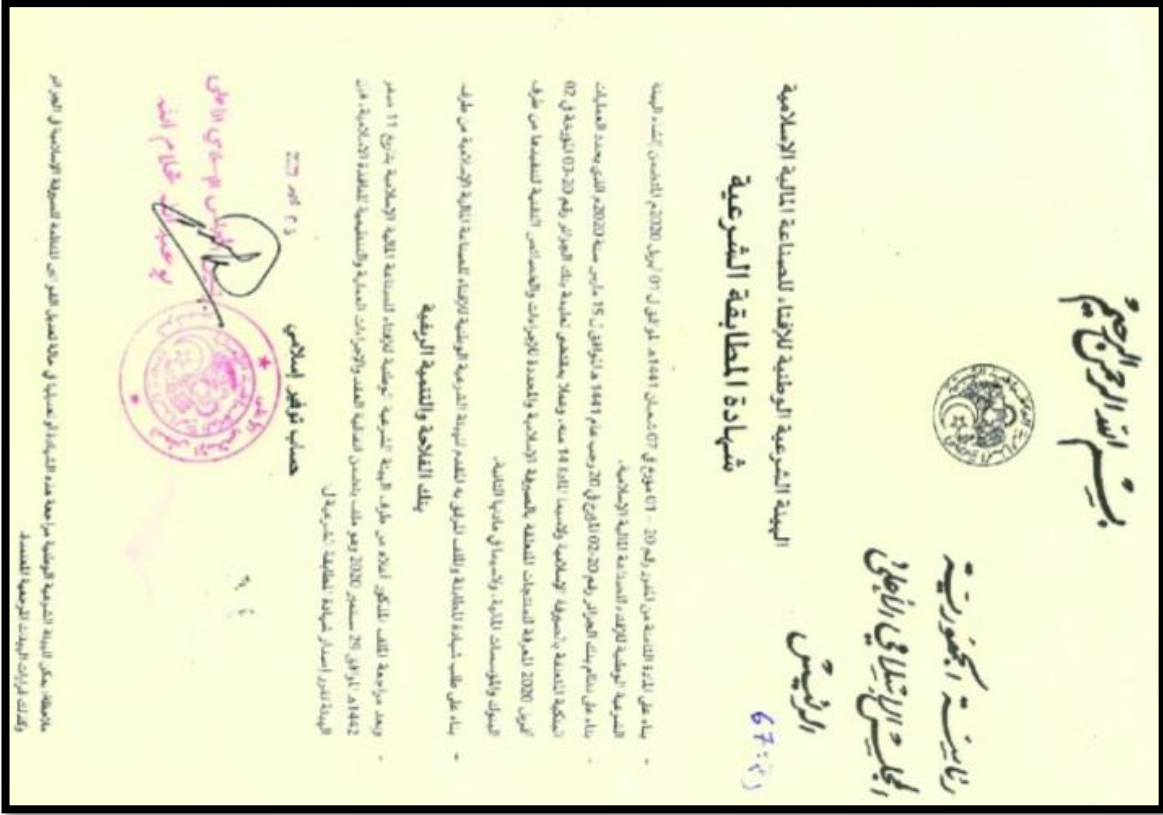 بسم الله الرحمن الرحيم
رئاسة الجمهورية
المجلس الإسلامي الأعلى
الرئيس
رقم: 67
الهيئة الشرعية الوطنية للإفتاء للصناعة المالية الإسلامية
شهادة المطابقة الشرعية
- بناء على المادة الثامنة من المقرر رقم 20 - 01 مؤرخ في 07 شعبان 1441ه الموافق ل 01 أبريل 2020م المتضمن إنشاء الهيئة
الشرعية الوطنية للإفتاء للصناعة المالية الإسلامية.
- بناء على نظام بنك الجزائر رقم 20-02 المؤرخ في 20 رجب عام 1441 ه الموافق ل 15 مارس سنة 2020م الذي يحدد العمليات
البنكية المتعلقة بالصيرفة الإسلامية ولاسيما المادة 14 منه، وعملا بمقتضى تعليمة بنك الجزائر رقم 20-03 المؤرخة في 02
أفريل 2020 المعرفة للمنتجات المتعلقة بالصيرفة الإسلامية والمحددة للإجراءات والخصائص التقنية لتنفيذها من طرف
البنوك والمؤسسات المالية، ولاسيما في مادتها الثانية.
- بناء على طلب شهادة المطابقة والملف المرفق به المقدم للهيئة الشرعية الوطنية للإفتاء للصناعة المالية الإسلامية من طرف
بنك الفلاحة والتنمية الريفية
- وبعد مراجعة الملف المذكور أعلاه من طرف الهيئة الشرعية الوطنية للإفتاء للصناعة المالية الإسلامية بتاريخ 11 صفر
1442ه الموافق 29 سبتمبر 2020 وهو ملف يتضمن اتفاقية العقد والإجراءات العملية والتنظيمية للنافذة الإسلامية، فإن
الهيئة تقرر إصدار شهادة المطابقة الشرعية ل
حساب توفير إسلامي
المجلس الإسلامي الأعلى
بو عبد الله غلام الله
ملاحظة: يمكن للهيئة الشرعية الوطنية مراجعة هذه الشهادة أو تعديلها في حالة تعديل القوانين المنظمة للصيرفة الإسلامية في الجزائر
وكذلك قرارات الهيئات المرجعية المعتمدة.